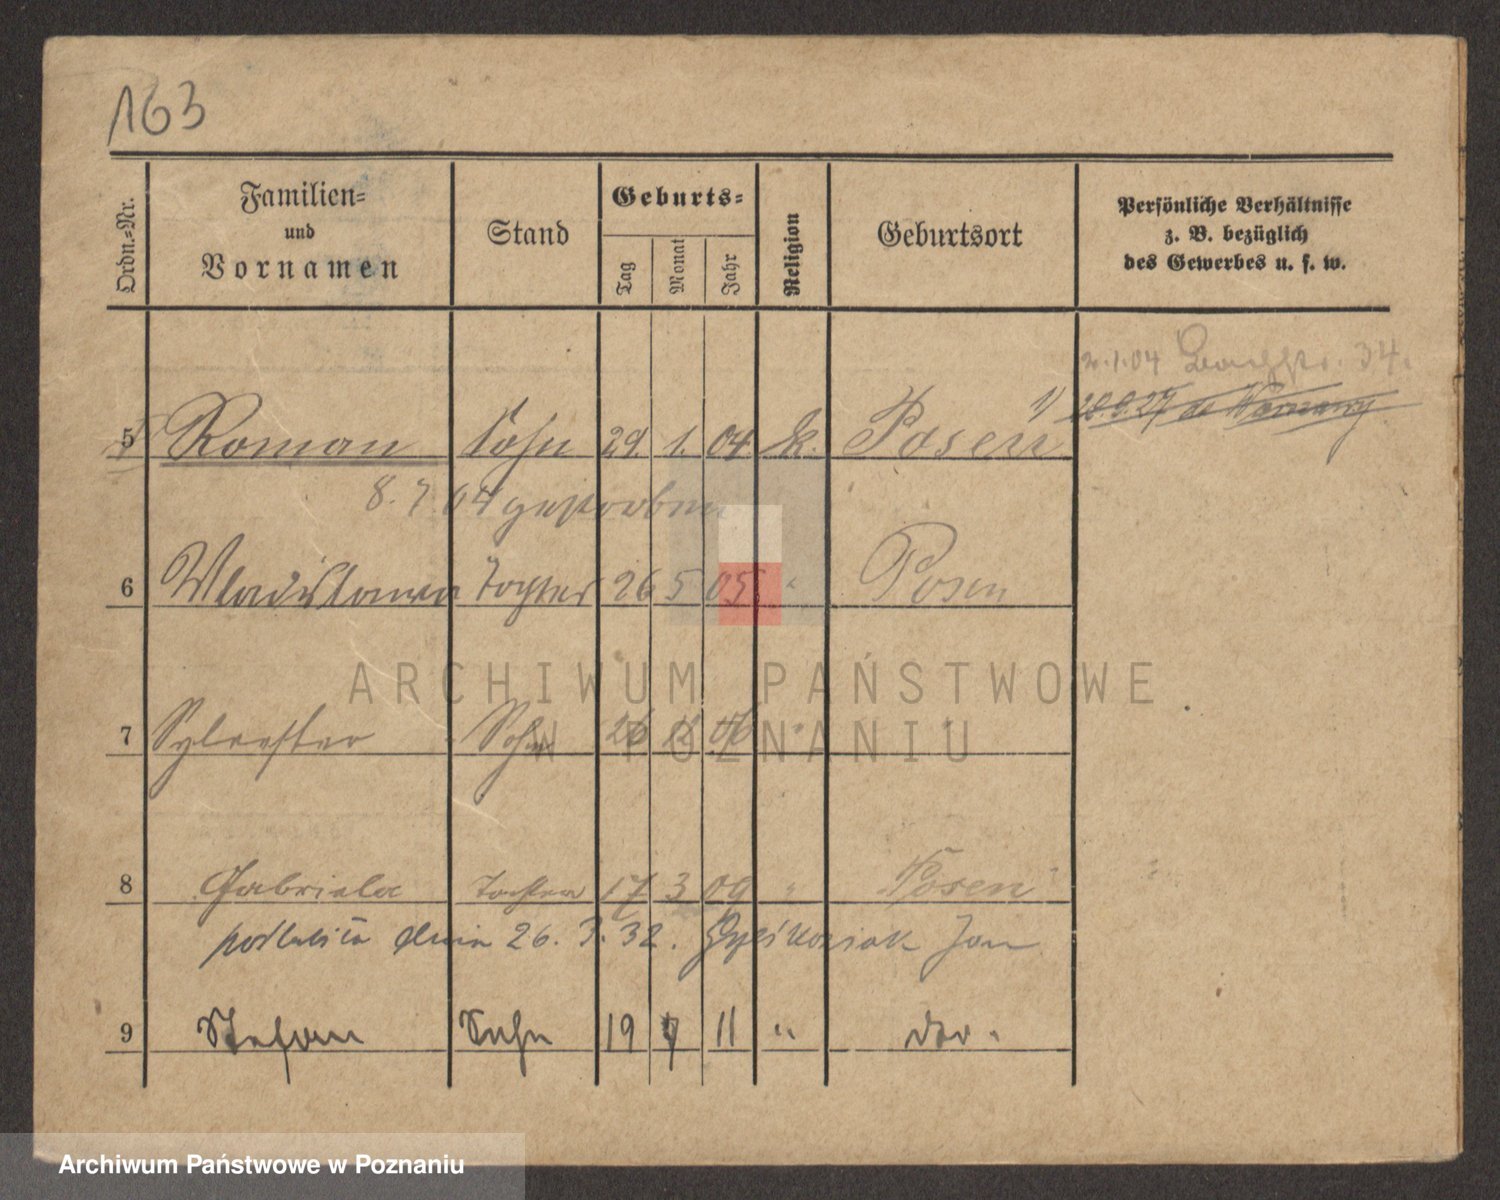 163
Ordn.-Nr.
Familien-
und
Vornamen
Stand
Geburts-
Tag
Monat
Jahr
Religion
Geburtsort
Persönliche Verhältnisse
z. B. bezüglich
des Gewerbes u. s. w.
1.04 34.
5 Roman Sohn 29. 1. 04 k. Posen 1)
8. 7 04 gestorben
6 Wladislawa Tochter 26 5 05 " Posen
ARCHIWUM PAŃSTWOWE
W POZNANIU
7 Sylvester Sohn 26 06 "
8 Gabriela Tochter 17 3 09 " Posen
dnia 26. 3. 32. Jan
9 Stefan Sohn 19 7 11 " dto.
Archiwum Państwowe w Poznaniu